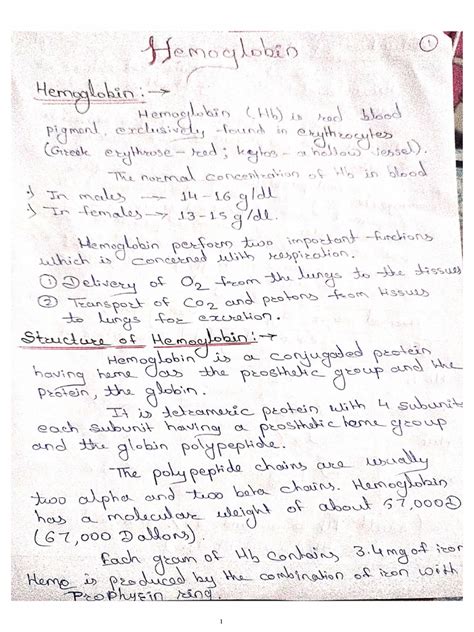 Hemoglobin
1
Hemoglobin :→
Hemoglobin (Hb) is red blood
pigment, exclusively found in erythrocytes
(Greek erythrose - red ; kytos - a hollow vessel).
The normal concentration of Hb in blood
In males → 14-16 g/dl
In females → 13-15 g/dl.
Hemoglobin perform two important functions
which is concerned with respiration.
① Delivery of O2 from the lungs to the tissues
② Transport of CO2 and protons from tissues
to lungs for excretion.
Structure of Hemoglobin :→
Hemoglobin is a conjugated protein
having heme as the prosthetic group and the
protein, the globin.
It is tetrameric protein with 4 subunit
each subunit having a prosthetic heme group
and the globin polypeptide.
The polypeptide chains are usually
two alpha and two beta chains. Hemoglobin
has a molecular weight of about 67,000D
(67,000 Daltons).
Each gram of Hb contains 3.4 mg of iron
Heme is produced by the combination of iron with
ring.
1